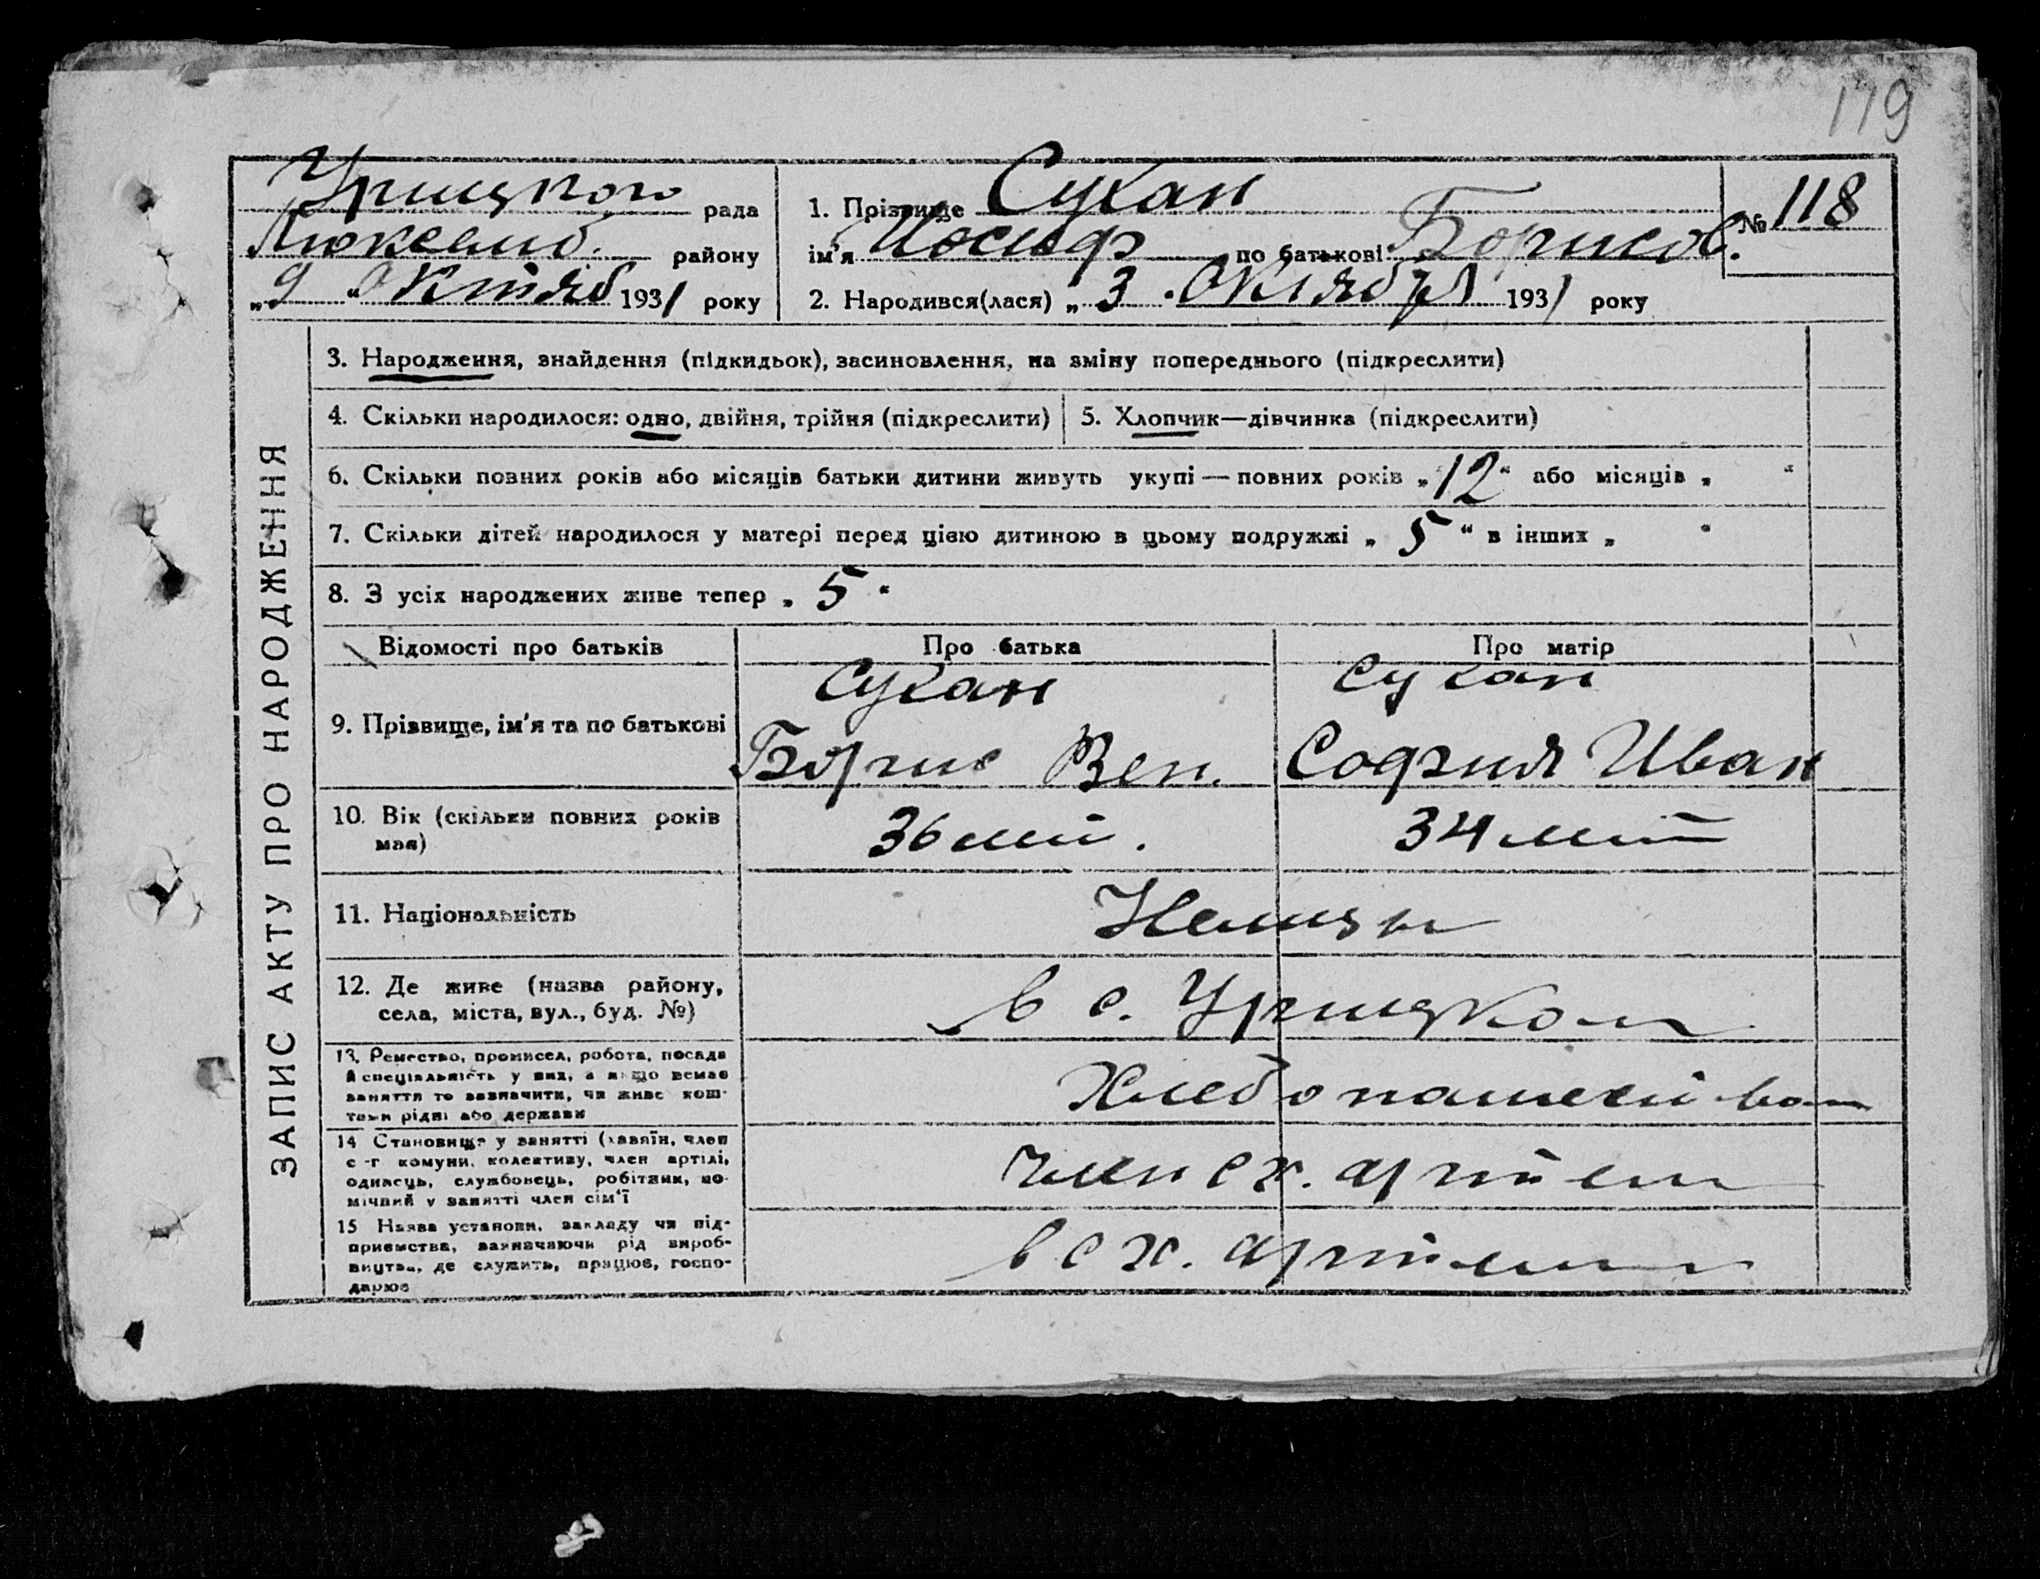 119
Урицкого рада
Люксемб. району
„9“ Октяб 1931 року
1. Прізвище Сукан
№ 118
ім'я Иосиф по батькові Борисов.
2. Народився(лася) „3“ Октября 1931 року
ЗАПИС АКТУ ПРО НАРОДЖЕННЯ
3. Народження, знайдення (підкидьок), засиновлення, на зміну попереднього (підкреслити)
4. Скільки народилося: одно, двійня, трійня (підкреслити)
5. Хлопчик—дівчинка (підкреслити)
6. Скільки повних років або місяців батьки дитини живуть укупі — повних років „12“ або місяців „ “
7. Скільки дітей народилося у матері перед цією дитиною в цьому подружжі „5“ в інших „ “
8. З усіх народжених живе тепер „5“
Відомості про батьків
Про батька
Про матір
9. Прізвище, ім'я та по батькові
Сукан
Борис Вен.
Сукан
София Иван
10. Вік (скільки повних років
має)
36 лет.
34 лет
11. Національність
Немцы
12. Де живе (назва району,
села, міста, вул., буд. №)
в с. Урицком
13. Ремество, промисел, робота, посада
й спеціяльність у них, а якщо немає
заняття то зазначити, чи живе кош-
тами рідні або держави
Хлебопашеством
14 Становище у занятті (хазяїн, член
с-г комуни, колективу, член артілі,
одинець, службовець, робітник, по-
мічний у занятті член сім'ї
член с х. артели
15 Назва установи, закладу чи під-
приємства, зазначаючи рід вироб-
ництва, де служить, працює, госпо-
дарює
в с х. артели